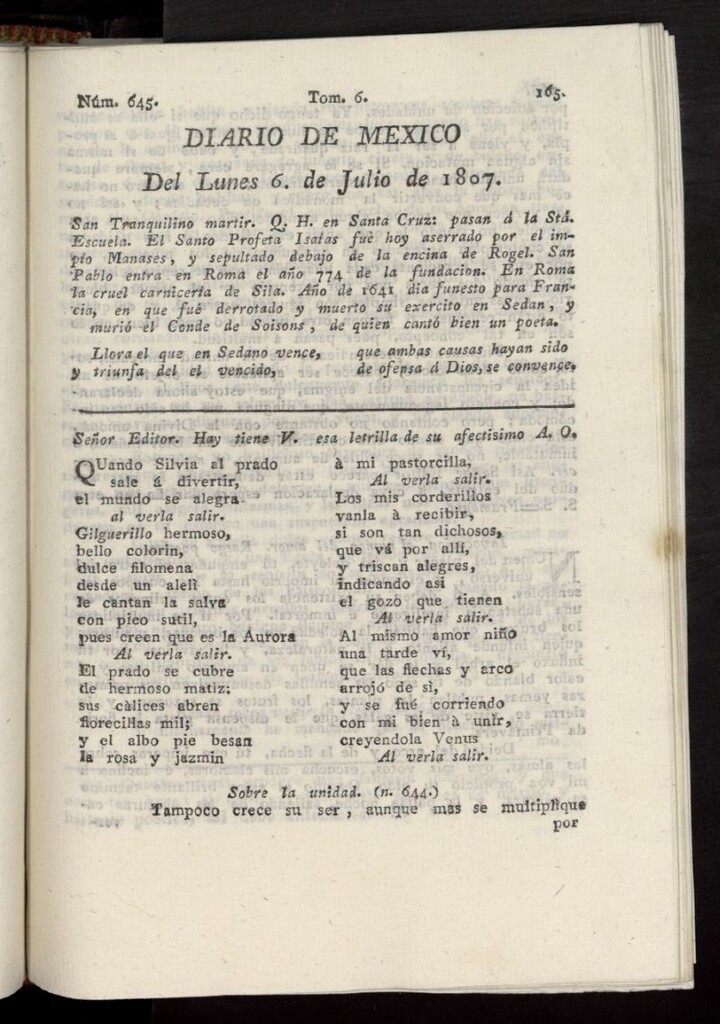 Núm. 645.
Tom. 6.
165.
DIARIO DE MEXICO
Del Lunes 6. de Julio de 1807.
San Tranquilino martir. Q. H. en Santa Cruz: pasan á la Stá.
Escuela. El Santo Profeta Isaías fuè hoy aserrado por el im-
pío Manases, y sepultado debajo de la encina de Rogel. San
Pablo entra en Roma el año 774 de la fundacion. En Roma
la cruel carniceria de Sila. Año de 1641 dia funesto para Fran-
cia, en que fué derrotado y muerto su exercito en Sedan, y
murió el Conde de Soisons, de quien cantó bien un poeta.
Llora el que en Sedano vence,
y triunfa del el vencido,
que ambas causas hayan sido
de ofensa á Dios, se convence.
Señor Editor. Hay tiene V. esa letrilla de su afectisimo A. O.
QUando Silvia al prado
sale á divertir,
el mundo se alegra
al verla salir.
Gilguerillo hermoso,
bello colorin,
dulce filomena
desde un alelì
le cantan la salva
con pico sutil,
pues creen que es la Aurora
Al verla salir.
El prado se cubre
de hermoso matiz:
sus càlices abren
florecillas mil;
y el albo pie besan
la rosa y jazmin
à mi pastorcilla,
Al verla salir.
Los mis corderillos
vanla à recibir,
si son tan dichosos,
que vá por allí,
y triscan alegres,
indicando asi
el gozo que tienen
Al verla salir.
Al mismo amor niño
una tarde ví,
que las flechas y arco
arrojó de sì,
y se fué corriendo
con mi bien à unir,
creyendola Venus
Al verla salir.
Sobre la unidad. (n. 644.)
Tampoco crece su ser, aunque mas se multiplique
por